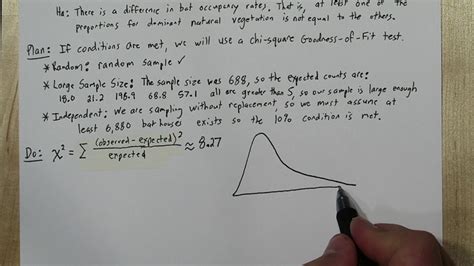 Ha: There is a difference in bat occupancy rates. That is, at least one of the
proportions for dominant natural vegetation is not equal to the others.
Plan: If conditions are met, we will use a chi-square Goodness-of-Fit test.
* Random: random sample ✓
* Large Sample Size: The sample size was 688, so the expected counts are:
18.0 21.2 198.9 68.8 57.1 all are greater than 5, so our sample is large enough
* Independent: We are sampling without replacement, so we must assume at
least 6,880 bat houses exists so the 10% condition is met.
Do: χ² = Σ (observed - expected)² / expected ≈ 8.27